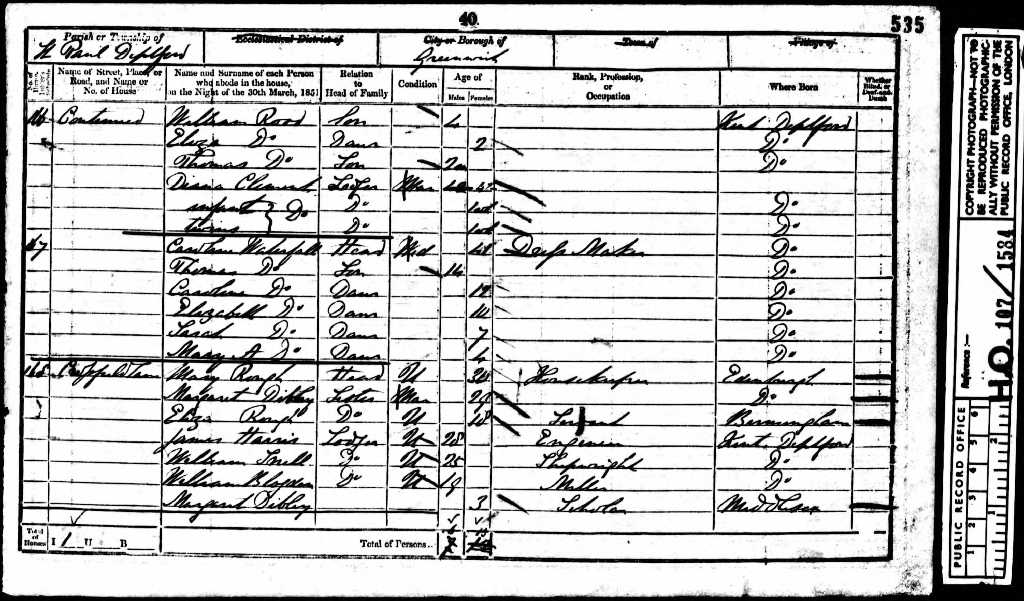 40.
535
Parish or Township of
Ecclesiastical District of
City or Borough of
Town of
Village of
St Paul Deptford
Greenwich
Name of Street, Place, or Road, and Name or No. of House
Name and Surname of each Person who abode in the house, on the Night of the 30th March, 1851
Relation to Head of Family
Condition
Age of
Males Females
Rank, Profession, or Occupation
Where Born
Whether Blind, or Deaf-and-Dumb
Continued William Rood Son 4 Kent Deptford
Eliza Do Daur 2 Do
Thomas Do Son Do
Diana Clement Lodger Mar
infant Do Do Do
twins Do Do
Caroline Waterfall Head Wid Do
Thomas Do Son 14 Do
Caroline Do Daur 12 Do
Elizabeth Do Daur 10 Do
Sarah Do Daur 7 Do
Mary A Do Daur 4 Do
Mary Rough Head U Housekeeper Edinburgh
Margaret Dibley Sister Mar 29 Do
Eliza Rough Do U 18 Servant Birmingham
James Harris Lodger U 28 Engineer Kent Deptford
William Snell Do U 25 Shipwright Do
William Do U 19 Do
Margaret Dibley 3 Scholar Middlesex
Total of Houses I 1 U B
Total of Persons
COPYRIGHT PHOTOGRAPH—NOT TO BE REPRODUCED PHOTOGRAPHIC-ALLY WITHOUT PERMISSION OF THE PUBLIC RECORD OFFICE, LONDON
Reference :—
H.O. 107/1584
PUBLIC RECORD OFFICE
1 2 3 4 5 6
1 2